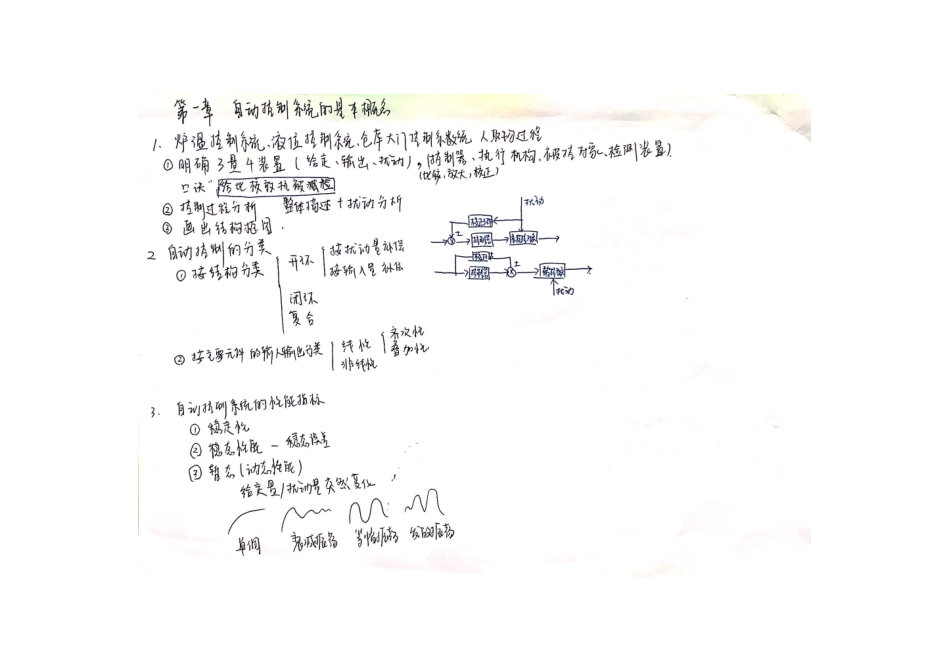 第一章 自动控制系统的基本概念
1. 炉温控制系统、液位控制系统、仓库大门控制系统 人取物过程
① 明确3量4装置(给定、输出、扰动),(控制器、执行机构、被控对象、检测装置)
(比较,放大,校正)
口诀"给比放校执被测检
② 控制过程分析 整体描述+扰动分析
③ 画出结构框图.
扰动
±
控制器
2 自动控制的分类
① 按结构分类
开环
按扰动量补偿
按输入量补偿
±
控制器
扰动
闭环
复合
② 按主要元件的输入输出分类
线性
齐次性
叠加性
非线性
3. 自动控制系统的性能指标
① 稳定性
② 稳态性能 - 稳态误差
③ 暂态(动态性能)
给定量/扰动量突然变化
单调 衰减振荡 等幅振荡 发散振荡